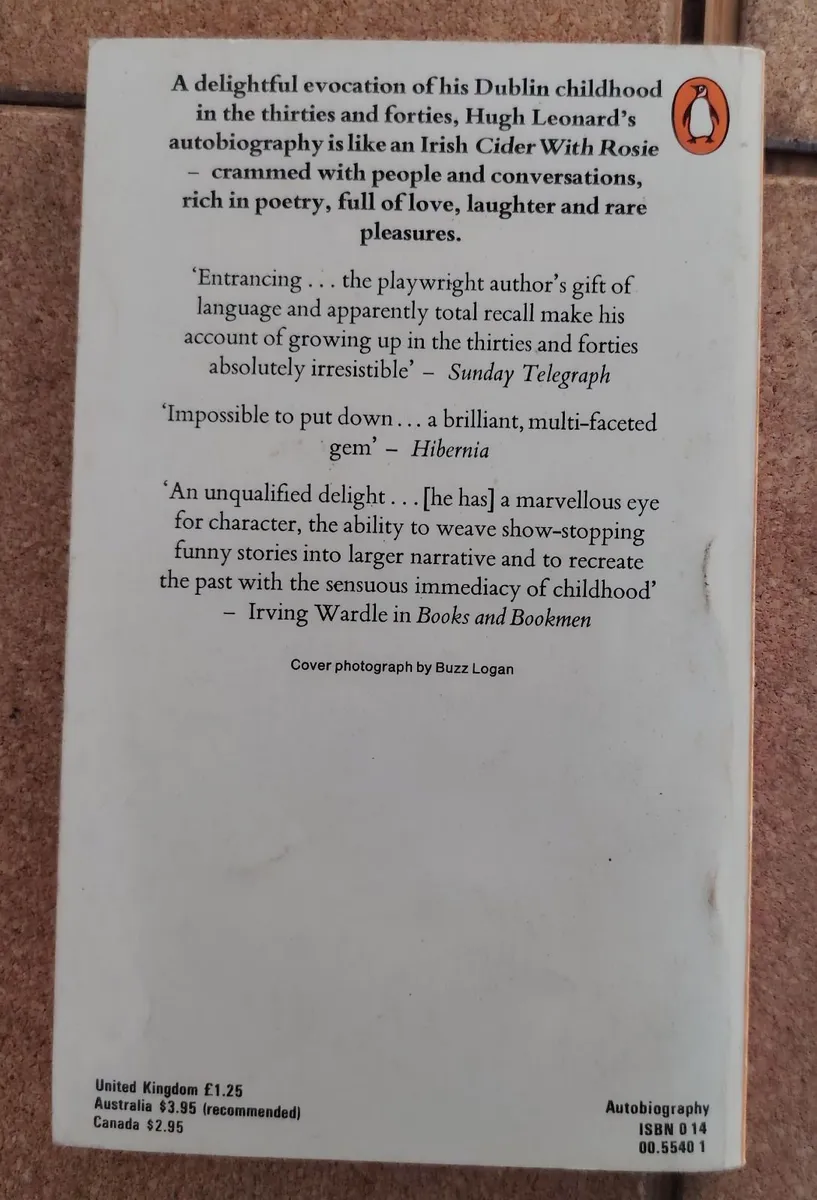 A delightful evocation of his Dublin childhood
in the thirties and forties, Hugh Leonard's
autobiography is like an Irish Cider With Rosie
– crammed with people and conversations,
rich in poetry, full of love, laughter and rare
pleasures.
'Entrancing . . . the playwright author's gift of
language and apparently total recall make his
account of growing up in the thirties and forties
absolutely irresistible' – Sunday Telegraph
'Impossible to put down . . . a brilliant, multi-faceted
gem' – Hibernia
'An unqualified delight . . . [he has] a marvellous eye
for character, the ability to weave show-stopping
funny stories into larger narrative and to recreate
the past with the sensuous immediacy of childhood'
– Irving Wardle in Books and Bookmen
Cover photograph by Buzz Logan
United Kingdom £1.25
Australia $3.95 (recommended)
Canada $2.95
Autobiography
ISBN 0 14
00.5540 1